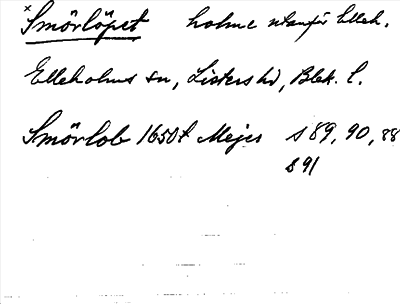 x Smörlöpet holme utanför Elleh.
Elleholms sn, Listers hd, Blek. l.
Smörlob 1650t Mejer s 89, 90, 88
s 91